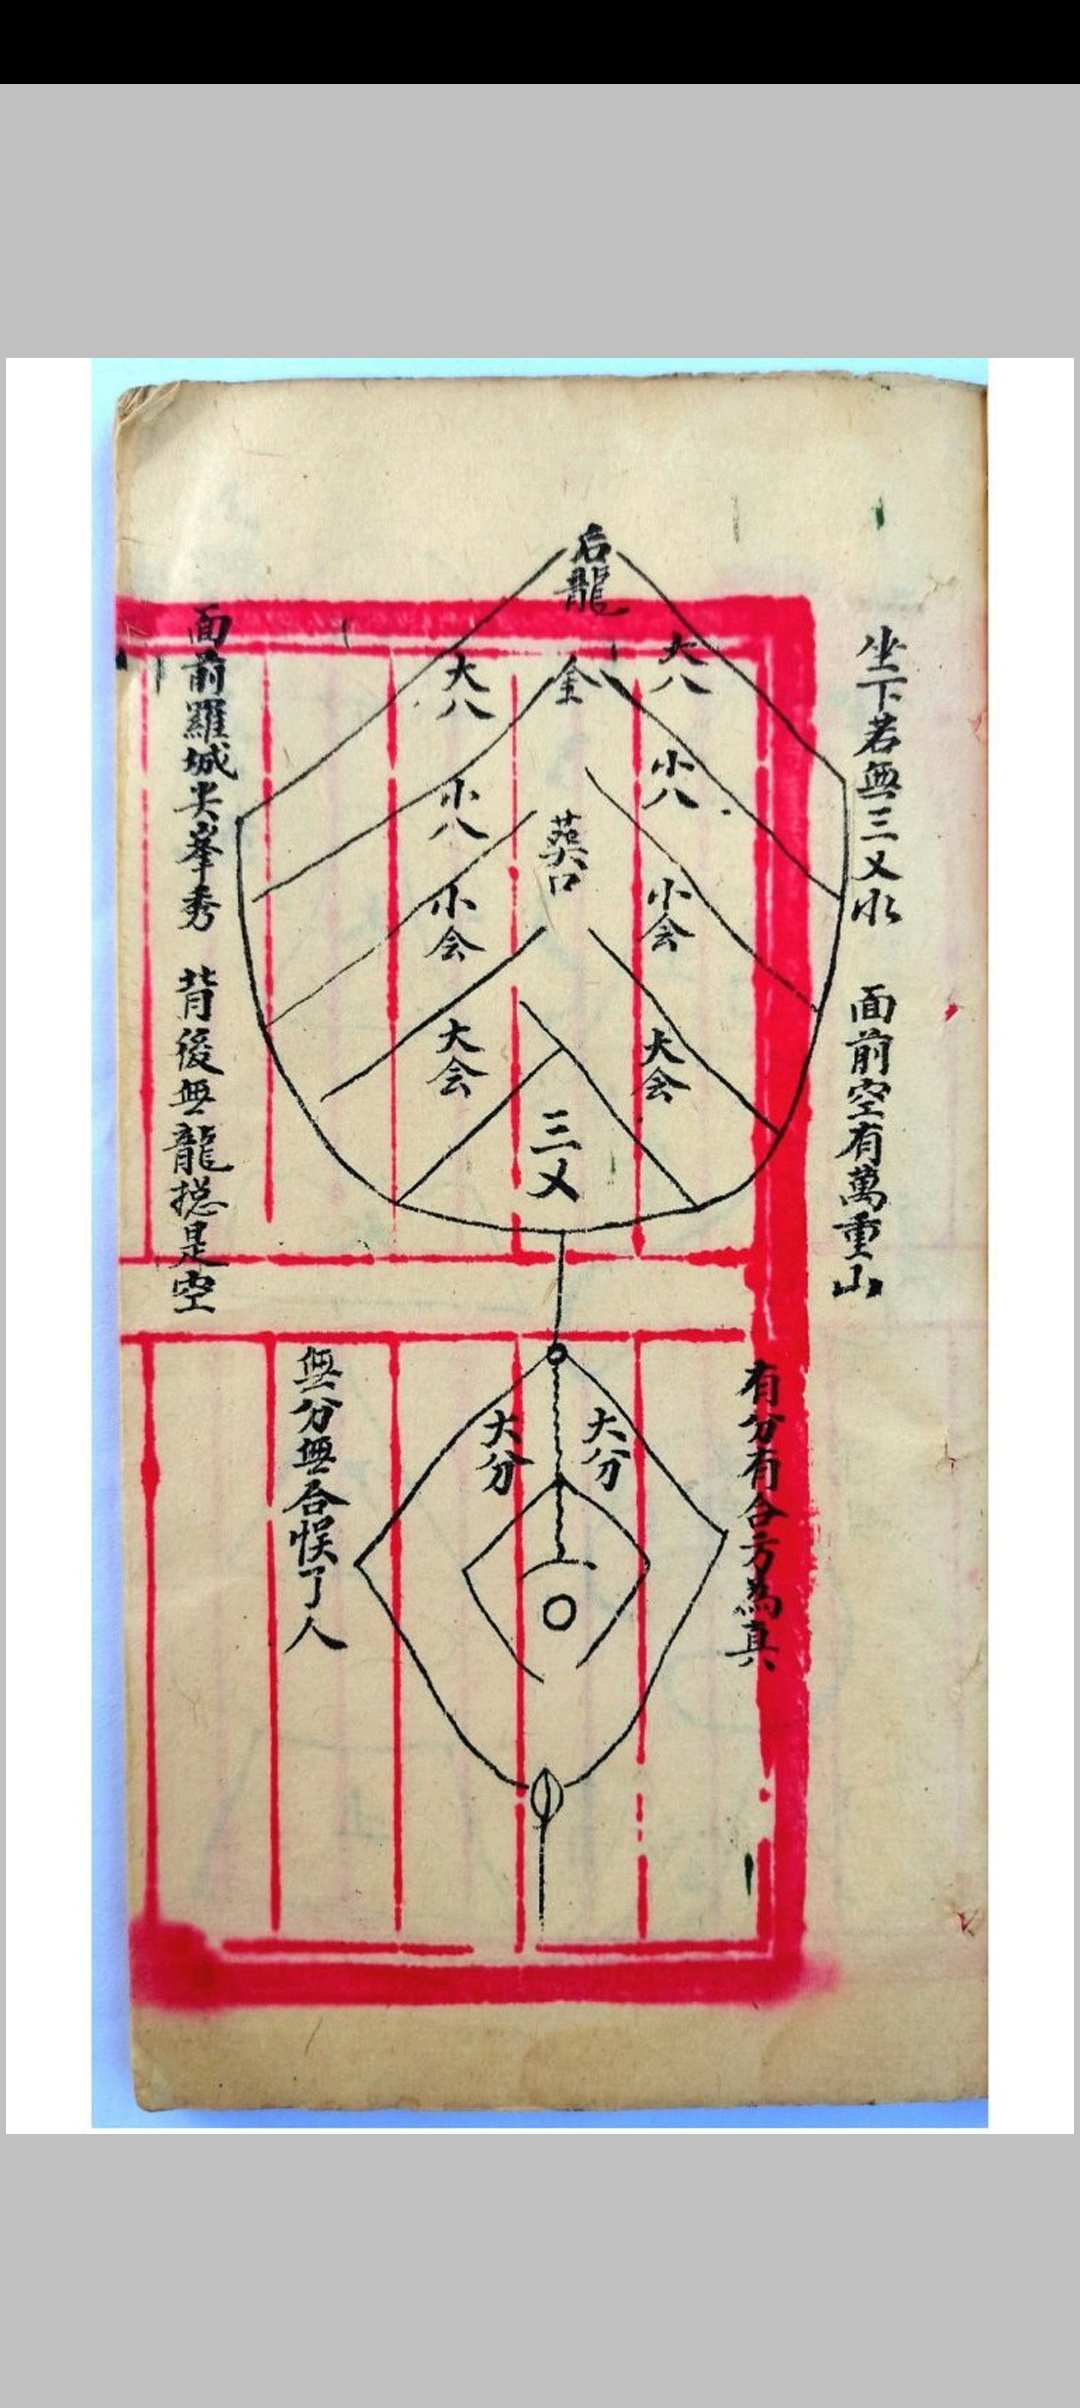 坐下若無三叉水　面前空有萬重山
后龍
大八
大八
金
小八
小八
葬口
小会
小会
大会
大会
三叉
面前羅城尖峯秀　背後無龍摠是空
有分有合方為真
大分
大分
無分無合悮了人